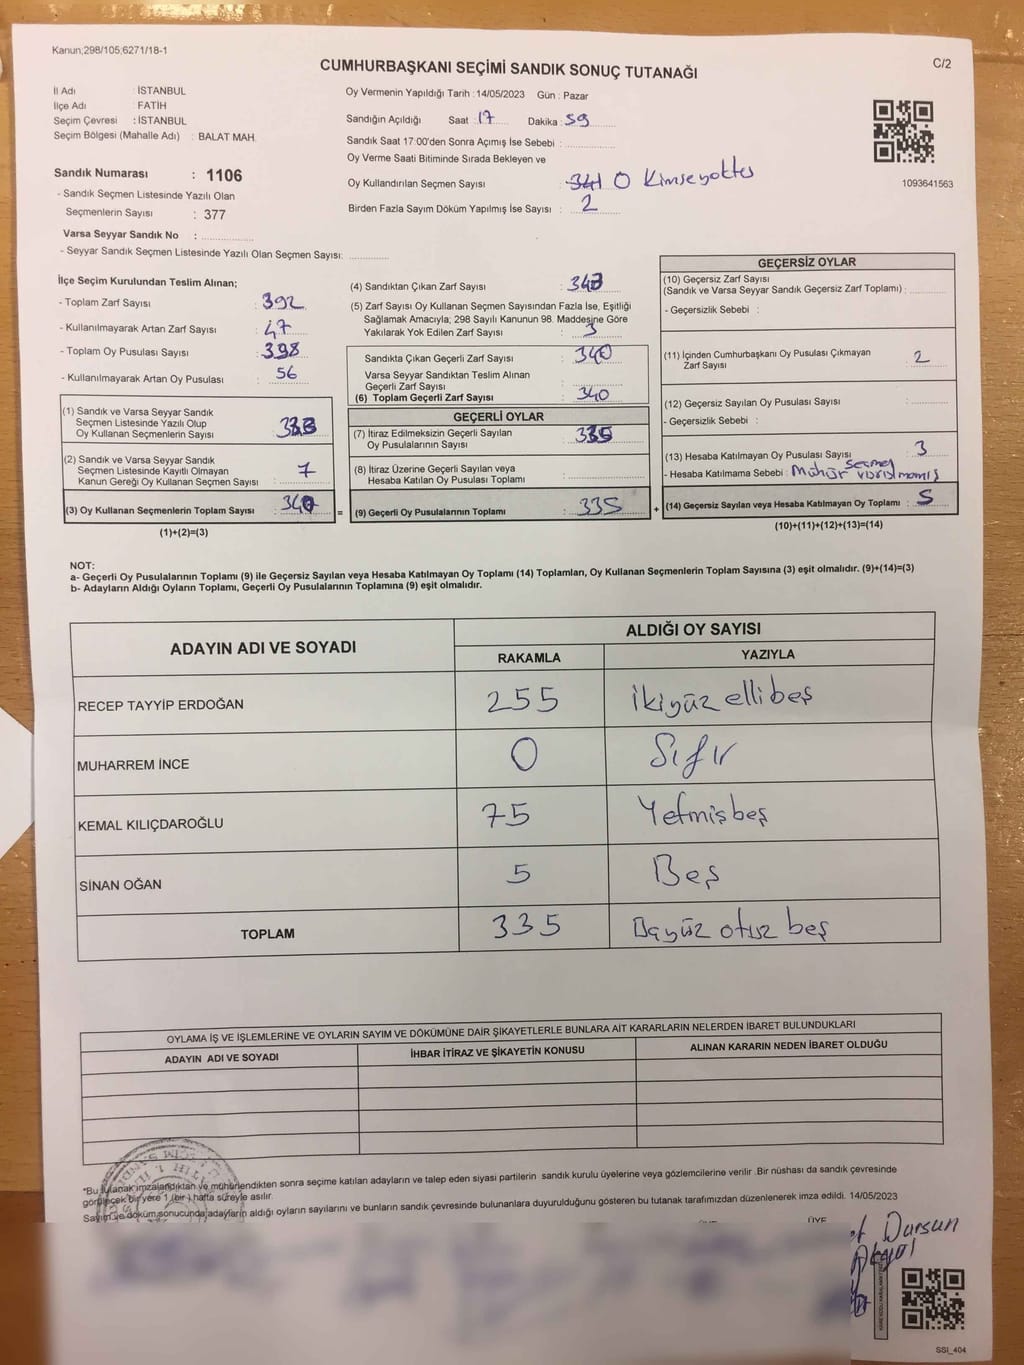 Kanun;298/105;6271/18-1
CUMHURBAŞKANI SEÇİMİ SANDIK SONUÇ TUTANAĞI
C/2
İl Adı : İSTANBUL
İlçe Adı : FATİH
Seçim Çevresi : İSTANBUL
Seçim Bölgesi (Mahalle Adı) : BALAT MAH.
Sandık Numarası : 1106
- Sandık Seçmen Listesinde Yazılı Olan
Seçmenlerin Sayısı : 377
Varsa Seyyar Sandık No : ................
- Seyyar Sandık Seçmen Listesinde Yazılı Olan Seçmen Sayısı: ............
Oy Vermenin Yapıldığı Tarih : 14/05/2023 Gün : Pazar
Sandığın Açıldığı Saat : 17 Dakika : 59
Sandık Saat 17:00'den Sonra Açımış İse Sebebi :
Oy Verme Saati Bitiminde Sırada Bekleyen ve
Oy Kullandırılan Seçmen Sayısı : 341 0 Kimse yoktu
Birden Fazla Sayım Döküm Yapılmış İse Sayısı : 2
1093641563
İlçe Seçim Kurulundan Teslim Alınan;
- Toplam Zarf Sayısı : 392
- Kullanılmayarak Artan Zarf Sayısı : 47
- Toplam Oy Pusulası Sayısı : 398
- Kullanılmayarak Artan Oy Pusulası : 56
(1) Sandık ve Varsa Seyyar Sandık
Seçmen Listesinde Yazılı Olup
Oy Kullanan Seçmenlerin Sayısı : 333
(2) Sandık ve Varsa Seyyar Sandık
Seçmen Listesinde Kayıtlı Olmayan
Kanun Gereği Oy Kullanan Seçmen Sayısı : 7
(3) Oy Kullanan Seçmenlerin Toplam Sayısı : 340
(1)+(2)=(3)
(4) Sandıktan Çıkan Zarf Sayısı : 343
(5) Zarf Sayısı Oy Kullanan Seçmen Sayısından Fazla İse, Eşitliği
Sağlamak Amacıyla; 298 Sayılı Kanunun 98. Maddesine Göre
Yakılarak Yok Edilen Zarf Sayısı : 3
Sandıkta Çıkan Geçerli Zarf Sayısı : 340
Varsa Seyyar Sandıktan Teslim Alınan
Geçerli Zarf Sayısı :
(6) Toplam Geçerli Zarf Sayısı : 340
GEÇERLİ OYLAR
(7) İtiraz Edilmeksizin Geçerli Sayılan
Oy Pusulalarının Sayısı : 335
(8) İtiraz Üzerine Geçerli Sayılan veya
Hesaba Katılan Oy Pusulası Toplamı :
= (9) Geçerli Oy Pusulalarının Toplamı : 335 +
GEÇERSİZ OYLAR
(10) Geçersiz Zarf Sayısı
(Sandık ve Varsa Seyyar Sandık Geçersiz Zarf Toplamı) :
- Geçersizlik Sebebi :
(11) İçinden Cumhurbaşkanı Oy Pusulası Çıkmayan
Zarf Sayısı : 2
(12) Geçersiz Sayılan Oy Pusulası Sayısı :
- Geçersizlik Sebebi :
(13) Hesaba Katılmayan Oy Pusulası Sayısı : 3
- Hesaba Katılmama Sebebi : Mühür seçmen vurulmamış
(14) Geçersiz Sayılan veya Hesaba Katılmayan Oy Toplamı : 5
(10)+(11)+(12)+(13)=(14)
NOT:
a- Geçerli Oy Pusulalarının Toplamı (9) ile Geçersiz Sayılan veya Hesaba Katılmayan Oy Toplamı (14) Toplamları, Oy Kullanan Seçmenlerin Toplam Sayısına (3) eşit olmalıdır. (9)+(14)=(3)
b- Adayların Aldığı Oyların Toplamı, Geçerli Oy Pusulalarının Toplamına (9) eşit olmalıdır.
ADAYIN ADI VE SOYADI ALDIĞI OY SAYISI
RAKAMLA YAZIYLA
RECEP TAYYİP ERDOĞAN 255 İkiyüz ellibeş
MUHARREM İNCE 0 Sıfır
KEMAL KILIÇDAROĞLU 75 Yetmişbeş
SİNAN OĞAN 5 Beş
TOPLAM 335 Üçyüz otuz beş
OYLAMA İŞ VE İŞLEMLERİNE VE OYLARIN SAYIM VE DÖKÜMÜNE DAİR ŞİKAYETLERLE BUNLARA AİT KARARLARIN NELERDEN İBARET BULUNDUKLARI
ADAYIN ADI VE SOYADI İHBAR İTİRAZ VE ŞİKAYETİN KONUSU ALINAN KARARIN NEDEN İBARET OLDUĞU
*Bu tutanak imzalandıktan ve mühürlendikten sonra seçime katılan adayların ve talep eden siyasi partilerin sandık kurulu üyelerine veya gözlemcilerine verilir .Bir nüshası da sandık çevresinde
görülecek bir yere 1 (bir ) hafta süreyle asılır.
Sayım ve döküm sonucunda adayların aldığı oyların sayılarını ve bunların sandık çevresinde bulunanlara duyurulduğunu gösteren bu tutanak tarafımızdan düzenlenerek imza edildi. 14/05/2023
ÜYE
Dursun
SSI_404